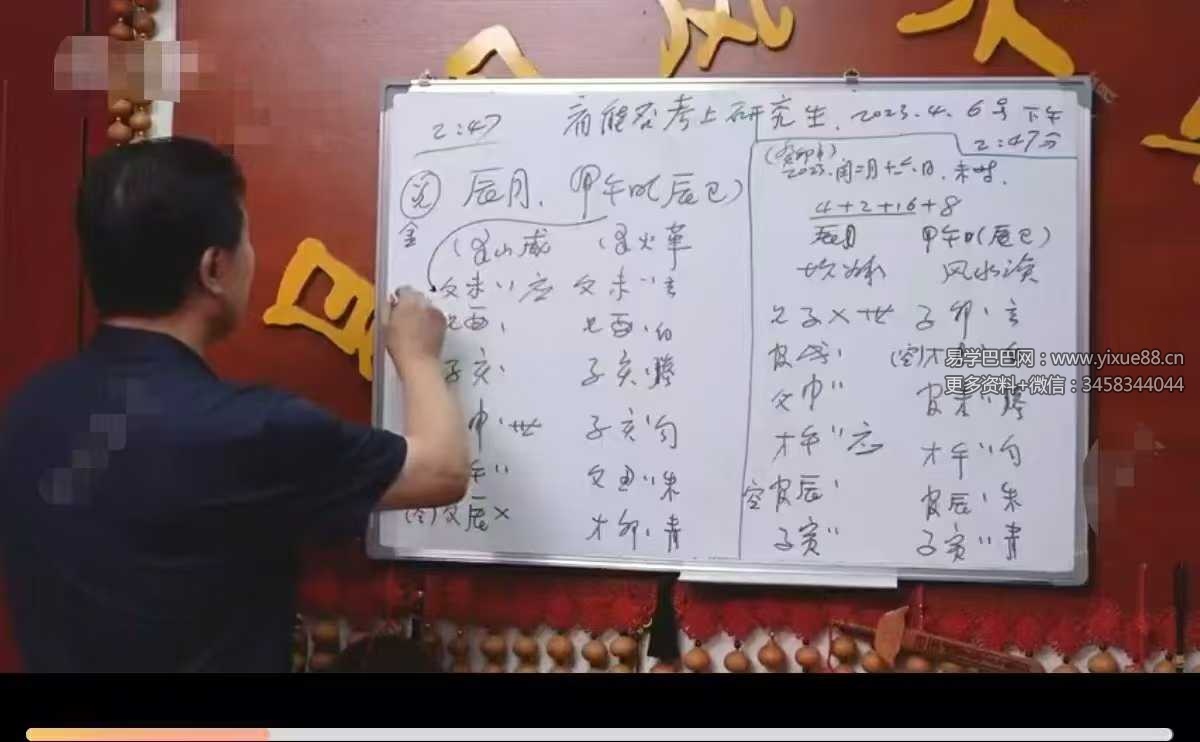 2:47 看能否考上研究生. 2023.4.6号下午
2:47分
辰月. 甲午日(辰巳)
金
泽山咸 泽火革
父未〃应 父未〃玄
兄酉、 兄酉、白
子亥、 子亥、螣
申、世 子亥、勾
午〃 父丑〃朱
(空)父辰× 才卯、青
(癸卯年)
2023.闰二月十六日.未时.
4+2+16+8
辰月 甲午日(辰巳)
坎为水 风水涣
兄子×世 子卯、玄
官戌、 (空)
父申〃 官未〃螣
才午〃应 才午〃勾
空官辰、 官辰、朱
子寅〃 子寅〃青
易学巴巴网：www.yixue88.cn
更多资料+微信：3458344044